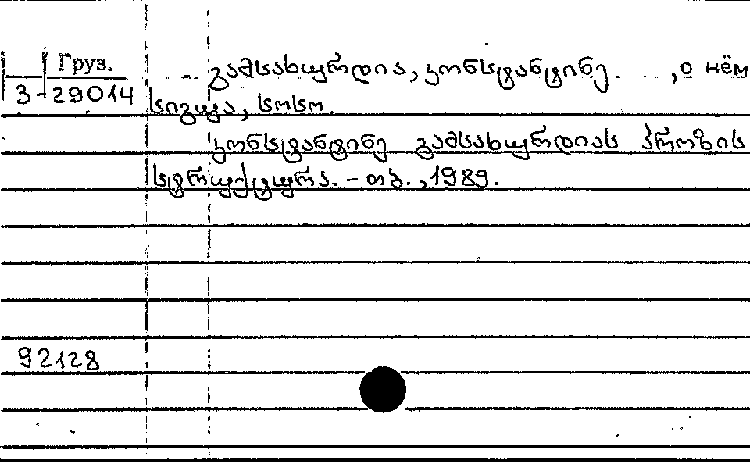 Груз.
3-29014
გამსახურდია, კონსტანტინე. , о нём
სიგუა, სოსო.
კონსტანტინე გამსახურდიას პროზის
სტრუქტურა. – თბ., 1989.
92128